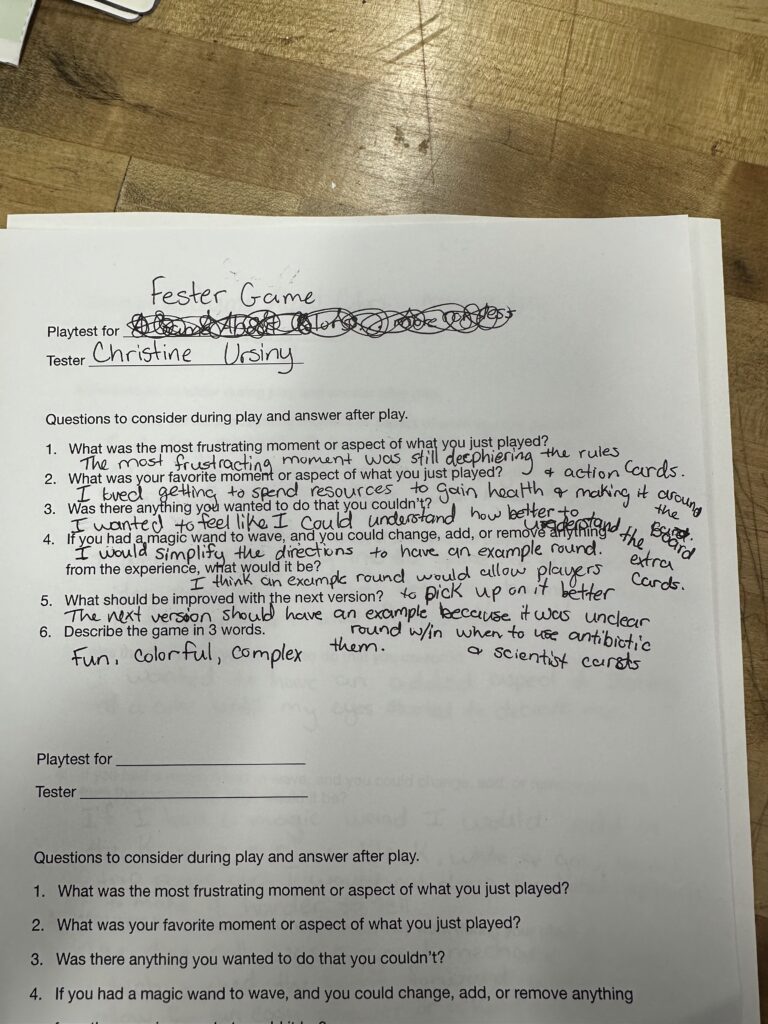 Fester Game
Playtest for
Tester Christine Ursiny
Questions to consider during play and answer after play.
1. What was the most frustrating moment or aspect of what you just played?
The most frustracting moment was still deciphiering the rules
& action cards.
2. What was your favorite moment or aspect of what you just played?
I loved getting to spend resources to gain health & making it around
the board.
3. Was there anything you wanted to do that you couldn't?
I wanted to feel like I could understand how better to
understand the extra cards.
4. If you had a magic wand to wave, and you could change, add, or remove anything
from the experience, what would it be?
I would simplify the directions to have an example round.
I think an example round would allow players
to pick up on it better
5. What should be improved with the next version?
The next version should have an example because it was unclear
round w/in them. when to use antibiotic
& scientist cards
6. Describe the game in 3 words.
Fun, colorful, complex
Playtest for
Tester
Questions to consider during play and answer after play.
1. What was the most frustrating moment or aspect of what you just played?
2. What was your favorite moment or aspect of what you just played?
3. Was there anything you wanted to do that you couldn't?
4. If you had a magic wand to wave, and you could change, add, or remove anything